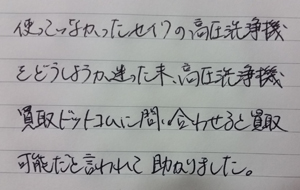 使ってなかったセイワの高圧洗浄機
をどうしようか迷った末、高圧洗浄機
買取ドットコムに問い合わせると買取
可能だと言われて助かりました。